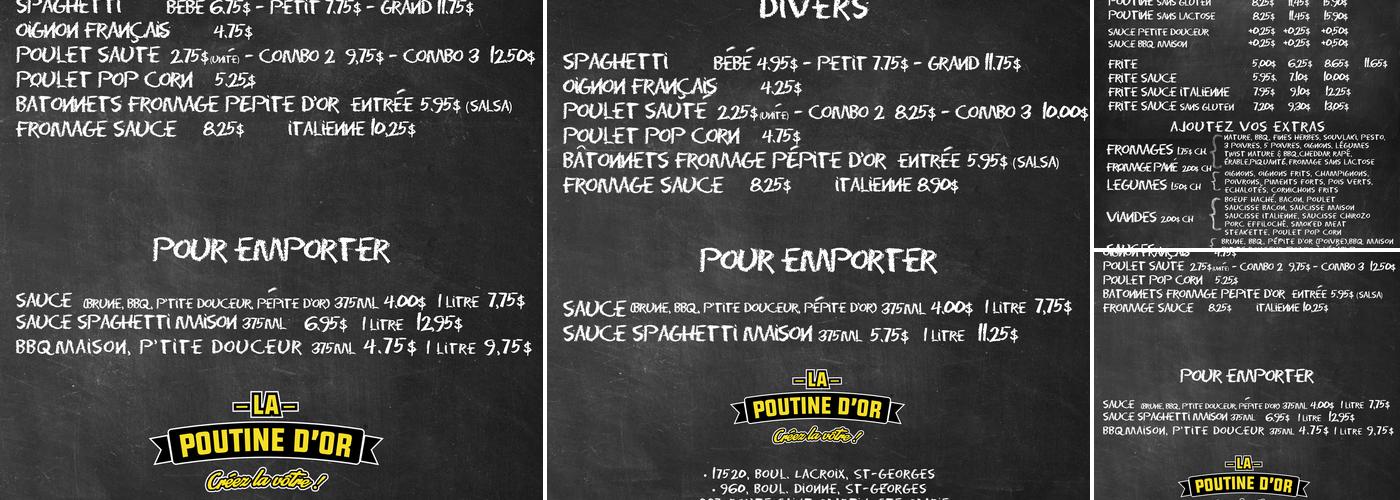 SPAGHETTI BÉBÉ 6.75$ - PETIT 7.75$ - GRAND 11.75$
OIGNON FRANÇAIS 4.75$
POULET SAUTÉ 2.75$ (UNITÉ) - COMBO 2 9,75$ - COMBO 3 12.50$
POULET POP CORN 5.25$
BATONNETS FROMAGE PEPITE D'OR ENTRÉE 5.95$ (SALSA)
FROMAGE SAUCE 8.25$ ITALIENNE 10,25$
POUR EMPORTER
SAUCE (BRUNE, BBQ, P'TITE DOUCEUR, PÉPITE D'OR) 375ML 4.00$ 1 LITRE 7,75$
SAUCE SPAGHETTI MAISON 375ML 6.95$ 1 LITRE 12,95$
BBQ MAISON, P'TITE DOUCEUR 375ML 4.75$ 1 LITRE 9,75$
LA
POUTINE D'OR
Créez la vôtre !
DIVERS
SPAGHETTI BÉBÉ 4.95$ - PETIT 7.75$ - GRAND 11.75$
OIGNON FRANÇAIS 4.25$
POULET SAUTÉ 2.25$ (UNITÉ) - COMBO 2 8.25$ - COMBO 3 10.00$
POULET POP CORN 4.75$
BÂTONNETS FROMAGE PÉPITE D'OR ENTRÉE 5.95$ (SALSA)
FROMAGE SAUCE 8.25$ ITALIENNE 8.90$
POUR EMPORTER
SAUCE (BRUNE, BBQ, P'TITE DOUCEUR, PÉPITE D'OR) 375ML 4.00$ 1 LITRE 7,75$
SAUCE SPAGHETTI MAISON 375ML 5.75$ 1 LITRE 11.25$
LA
POUTINE D'OR
Créez la vôtre !
• 17520, BOUL. LACROIX, ST-GEORGES
• 960, BOUL. DIONNE, ST-GEORGES
POUTINE SANS GLUTEN 8.25$ 11,45$ 15,90$
POUTINE SANS LACTOSE 8.25$ 11,45$ 15,90$
SAUCE PETITE DOUCEUR +0,25$ +0,25$ +0,50$
SAUCE BBQ MAISON +0,25$ +0,25$ +0,50$
FRITE 5,00$ 6,25$ 8.65$ 11.65$
FRITE SAUCE 5.95$ 7.10$ 10.00$
FRITE SAUCE ITALIENNE 7.95$ 9,10$ 12.25$
FRITE SAUCE SANS GLUTEN 7,20$ 9,30$ 13.05$
AJOUTEZ VOS EXTRAS
FROMAGES 1.75$ CH NATURE, BBQ, FINES HERBES, SOUVLAKI, PESTO,
3 POIVRES, 5 POIVRES, OIGNONS, LÉGUMES
TWIST NATURE & BBQ, CHEDDAR RAPÉ,
FROMAGE PANÉ 2.00$ CH ÉRABLE, PIQUANTE, FROMAGE SANS LACTOSE
LEGUMES 1.50$ CH OIGNONS, OIGNONS FRITS, CHAMPIGNONS,
POIVRONS, PIMENTS FORTS, POIS VERTS,
ECHALOTES, CORNICHONS FRITS
VIANDES 2.00$ CH BOEUF HACHÉ, BACON, POULET
SAUCISSE BACON, SAUCISSE MAISON
SAUCISSE ITALIENNE, SAUCISSE CHIROZO
PORC EFFILOCHÉ, SMOKED MEAT
STEAKETTE, POULET POP CORN
SAUCES BRUNE, BBQ, PÉPITE D'OR (POIVRE), BBQ MAISON
OIGNON FRANÇAIS 4.75$
POULET SAUTE 2.75$ (UNITÉ) - COMBO 2 9,75$ - COMBO 3 12.50$
POULET POP CORN 5.25$
BATONNETS FROMAGE PEPITE D'OR ENTRÉE 5.95$ (SALSA)
FROMAGE SAUCE 8.25$ ITALIENNE 10.25$
POUR EMPORTER
SAUCE (BRUNE, BBQ, P'TITE DOUCEUR, PÉPITE D'OR) 375ML 4.00$ 1 LITRE 7,75$
SAUCE SPAGHETTI MAISON 375ML 6.95$ 1 LITRE 12,95$
BBQ MAISON, P'TITE DOUCEUR 375ML 4.75$ 1 LITRE 9,75$
LA
POUTINE D'OR